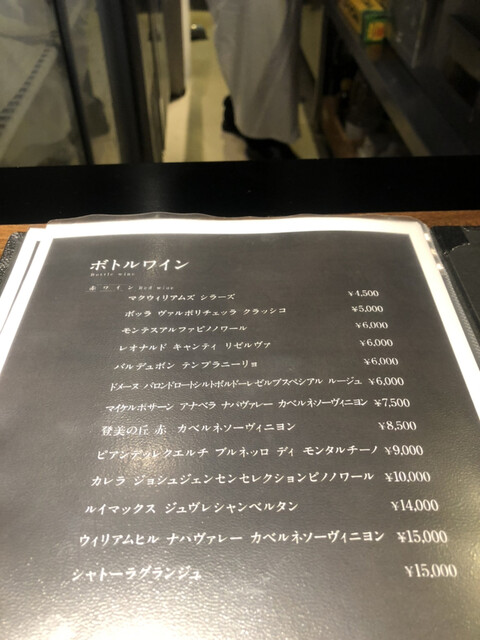 ボトルワイン
Bottle wine
赤ワイン Red wine
マクウィリアムズ シラーズ ¥4,500
ボッラ ヴァルポリチェッラ クラッシコ ¥5,000
モンテスアルファピノノワール ¥6,000
レオナルド キャンティ リゼルヴァ ¥6,000
バルデュボン テンプラニーリョ ¥6,000
ドメーヌ バロンドロートシルトボルドーレゼルブスペシアル ルージュ ¥6,000
マイケルポザーン アナベラ ナパヴァレー カベルネソーヴィニヨン ¥7,500
登美の丘 赤 カベルネソーヴィニヨン ¥8,500
ピアンデッレクエルチ ブルネッロ ディ モンタルチーノ ¥9,000
カレラ ジョシュジェンセンセレクションピノノワール ¥10,000
ルイマックス ジュヴレシャンベルタン ¥14,000
ウィリアムヒル ナパヴァレー カベルネソーヴィニヨン ¥15,000
シャトーラグランジュ ¥15,000